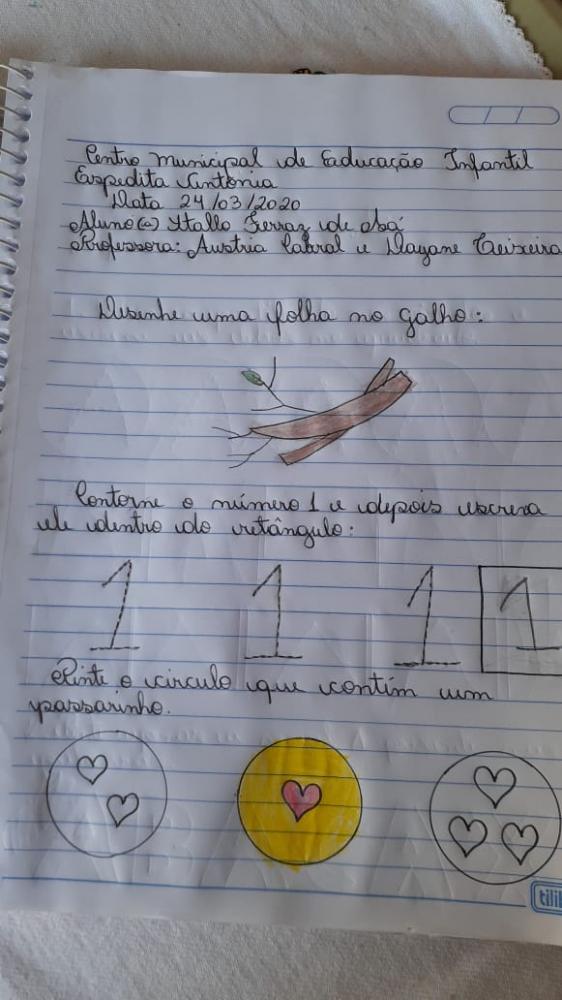 Centro municipal de Educação Infantil
Expedita Antônia
Data 24/03/2020
Aluno(a) Ytallo Ferraz de Sá
Professora: Austria Cabral e Dayane Teixeira
Desenhe uma folha no galho:
Contorne o número 1 e depois escreva
ele dentro do retângulo:
1 1 1 1
Pinte o circulo que contém um
passarinho.